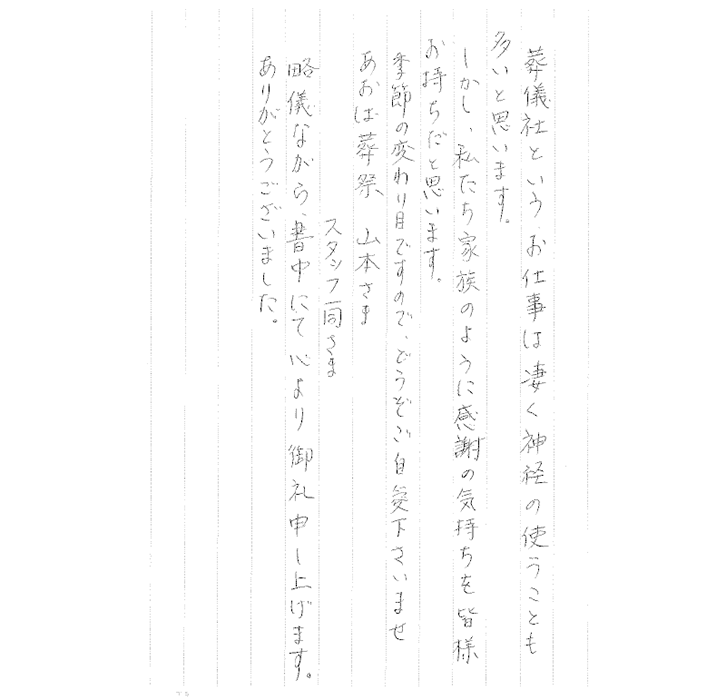 葬儀社という、お仕事は凄く神経の使うことも
多いと思います。
しかし、私たち家族のように感謝の気持ちを皆様
お持ちだと思います。
季節の変わり目ですので、どうぞご自愛下さいませ
あおば葬祭 山本さま
スタッフ一同さま
略儀ながら、書中にて心より御礼申し上げます。
ありがとうございました。